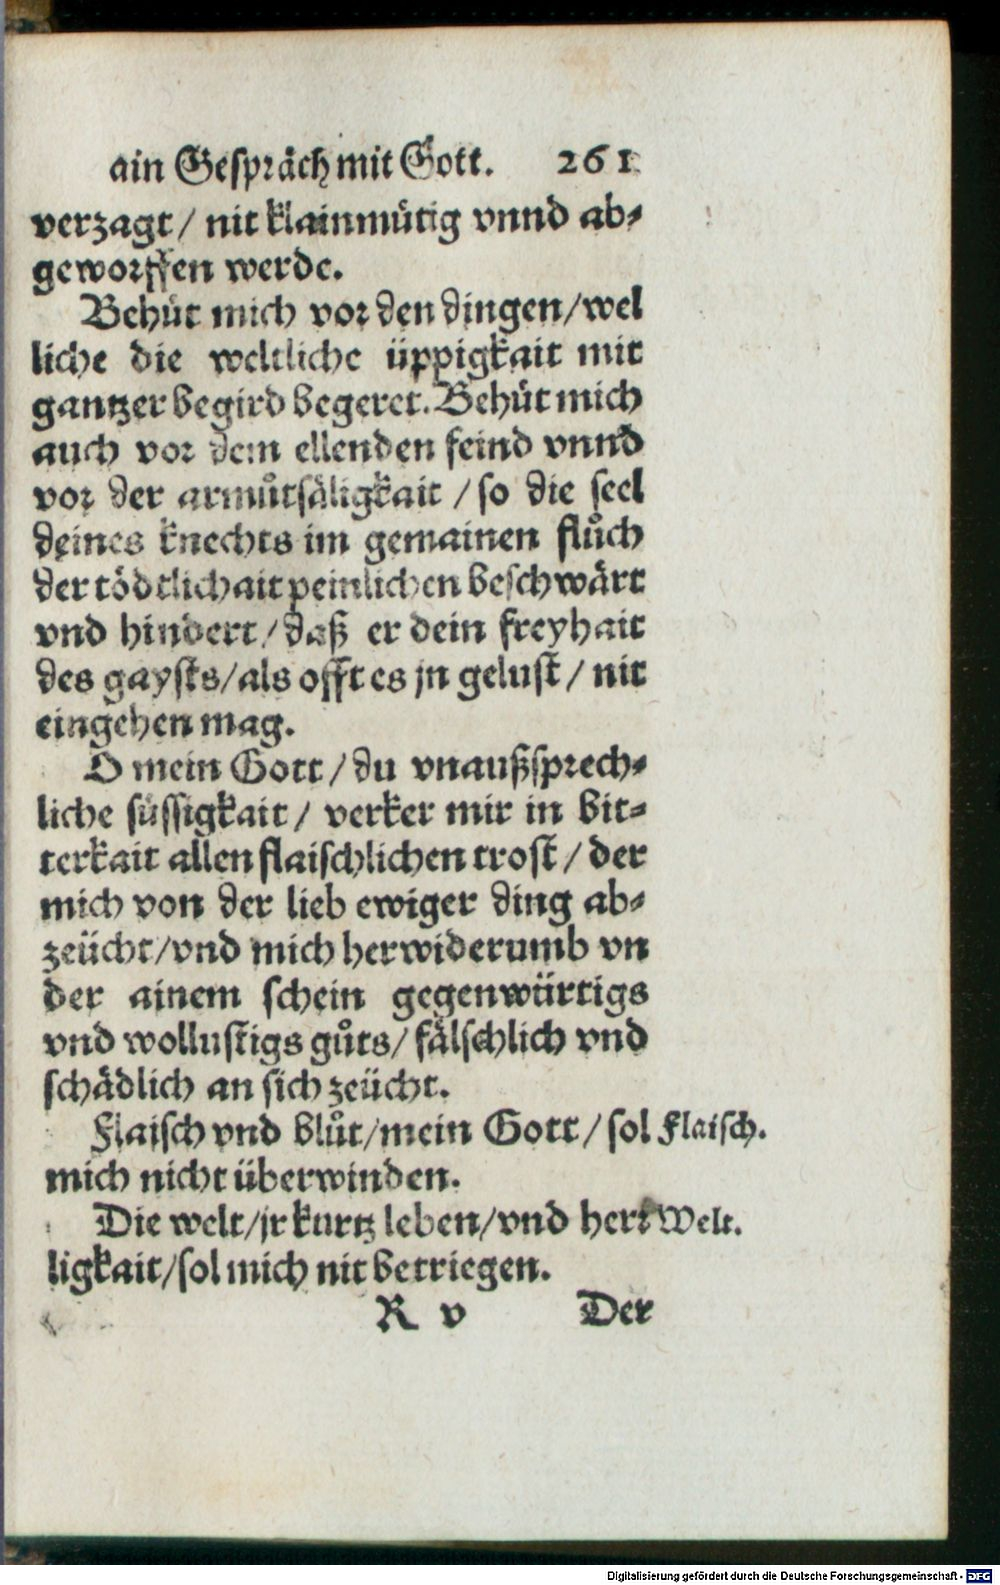 ain Gespräch mit Gott. 261
verzagt/ nit klainmütig vnnd ab-
geworffen werde.
Behüt mich vor den dingen/wel
liche die weltliche üppigkait mit
gantzer begird begeret. Behüt mich
auch vor dem ellenden feind vnnd
vor der armůtsäligkait /so die seel
deines knechts im gemainen flůch
der tödtlichait peinlichen beschwärt
vnd hindert/daß er dein freyhait
des gaysts/als offt es jn gelust/ nit
eingehen mag.
O mein Gott/du vnaußsprech-
liche süssigkait/ verker mir in bit-
terkait allen flaischlichen trost/der
mich von der lieb ewiger ding ab-
zeücht/vnd mich herwiderumb vn
der ainem schein gegenwürtigs
vnd wollustigs gůts/fälschlich vnd
schädlich an sich zeücht.
Flaisch vnd blůt/mein Gott/sol Flaisch.
mich nicht überwinden.
Die welt/jr kurtz leben/vnd herr Welt.
ligkait/sol mich nit betriegen.
R v Der
Digitalisierung gefördert durch die Deutsche Forschungsgemeinschaft - DFG